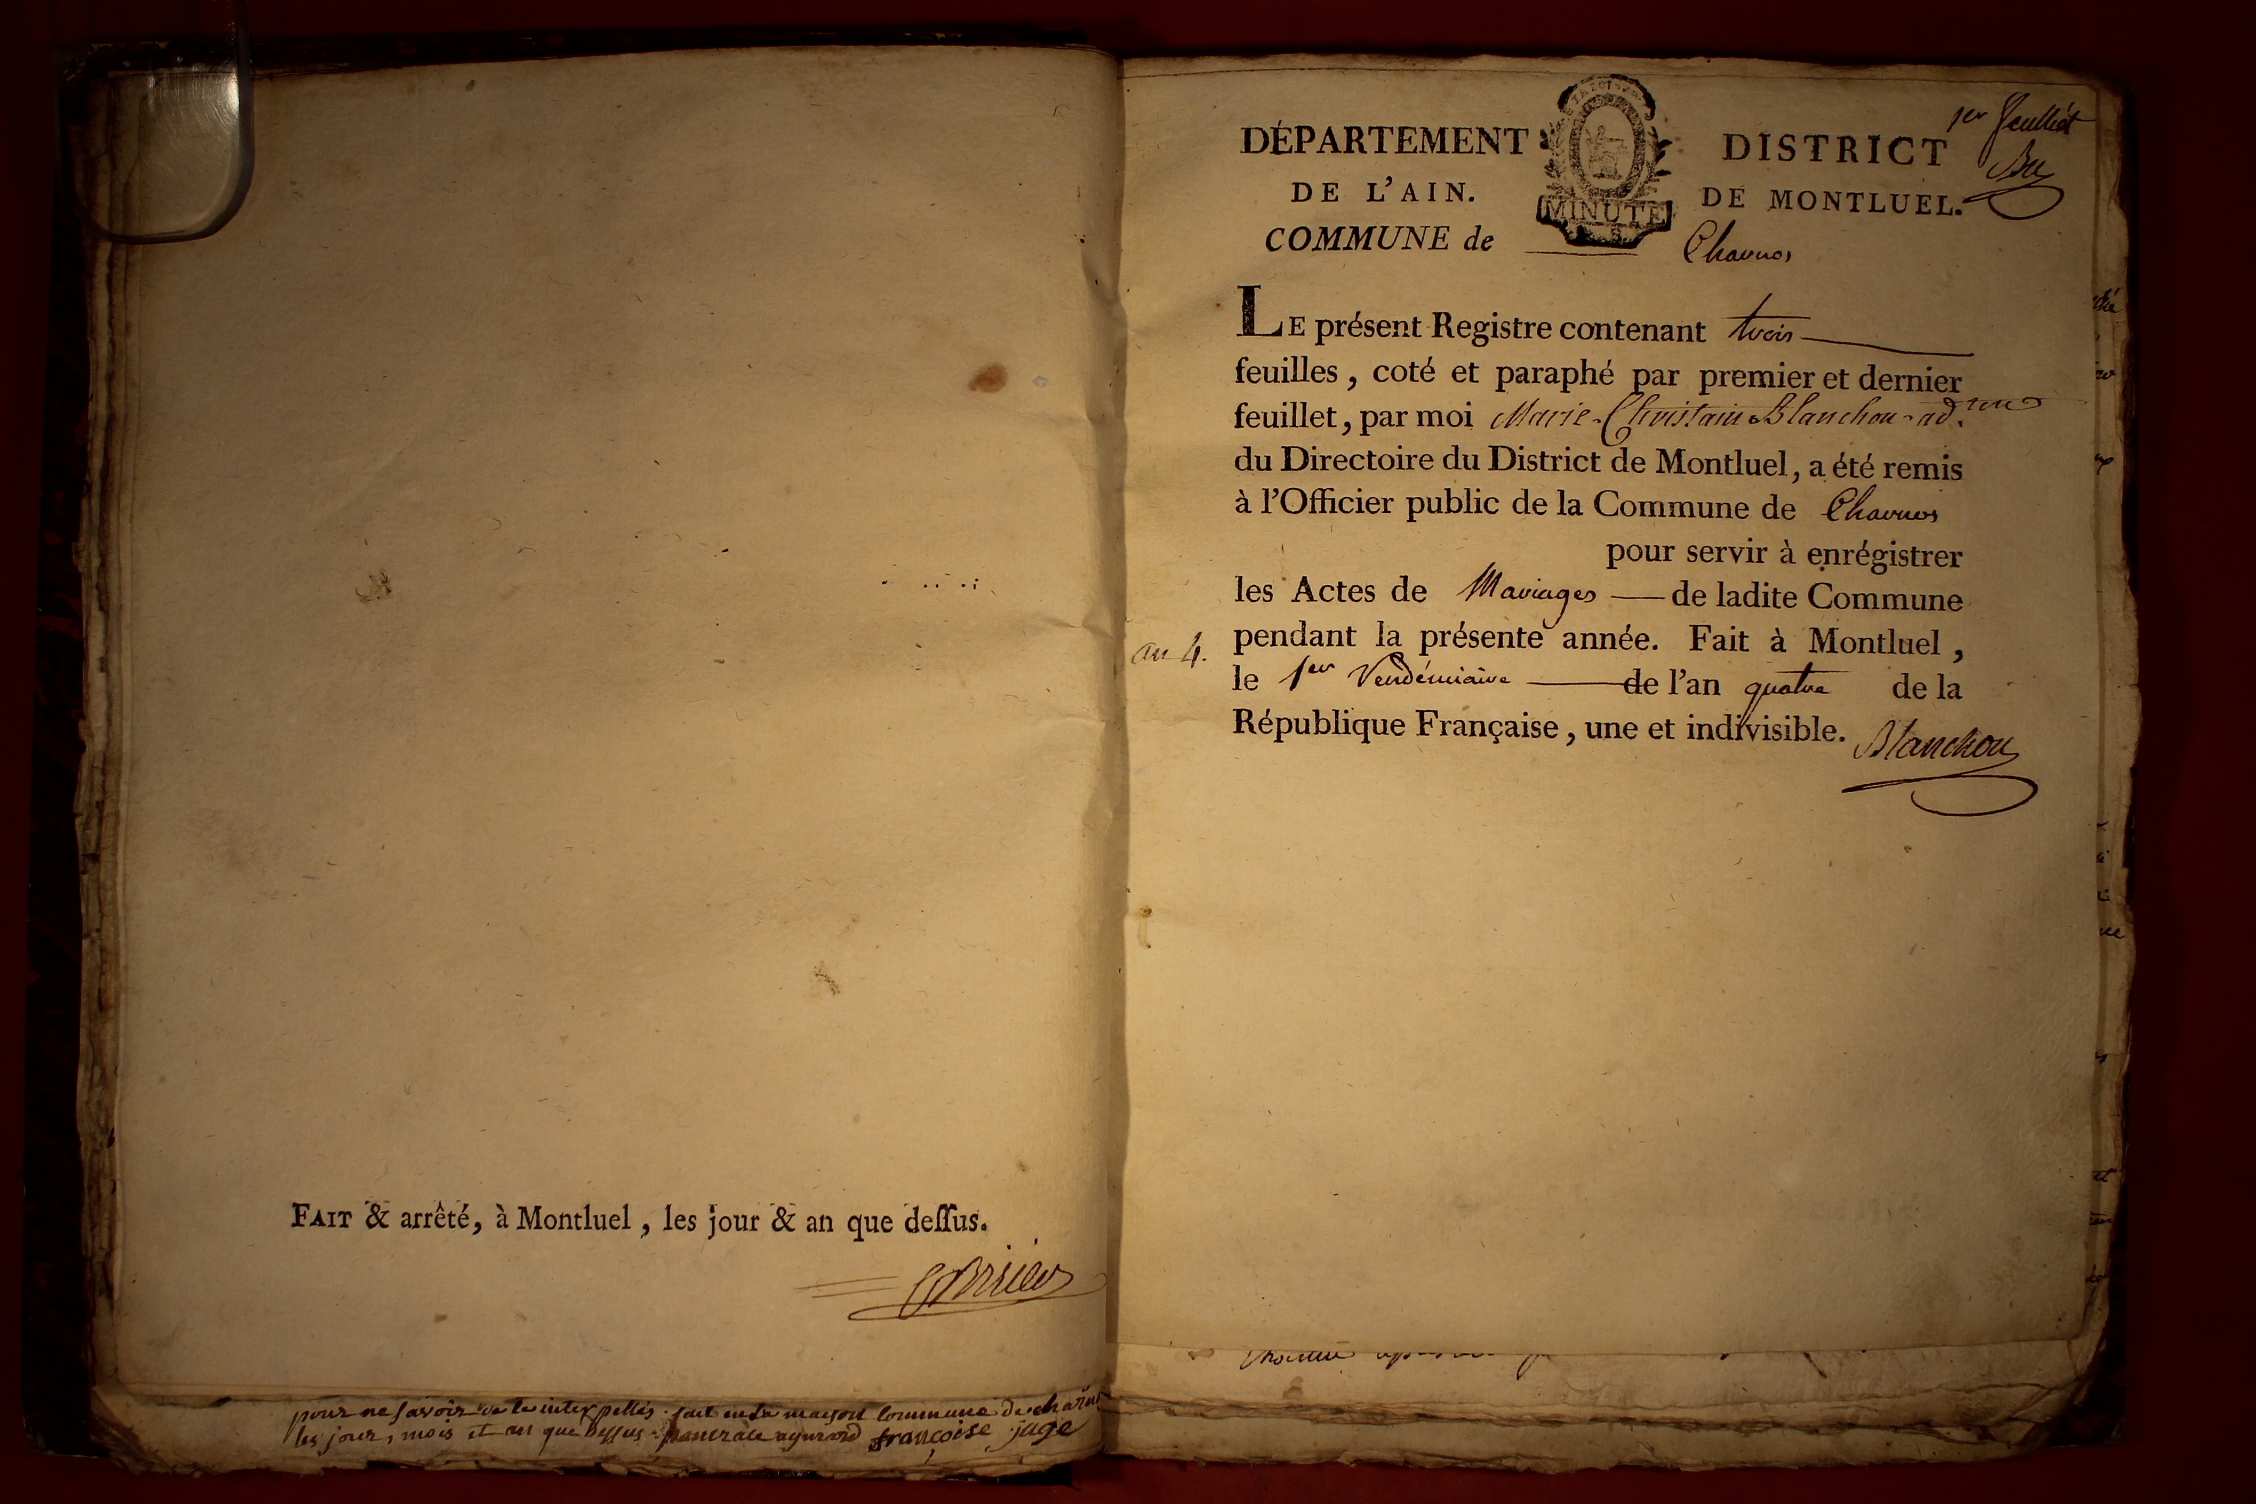 FAIT & arrêté, à Montluel, les jour & an que deſſus.
pour ne savoir de le interpellés. fait en la maison Commune de charnos
les jour, mois et an que Dessus françoise jage
1er feuillet
DÉPARTEMENT
DE L'AIN.
COMMUNE de Charnos
MINUTE
DISTRICT
DE MONTLUEL.
LE présent Registre contenant trois
feuilles, coté et paraphé par premier et dernier
feuillet, par moi Marie Christain Blanchon ad.
du Directoire du District de Montluel, a été remis
à l'Officier public de la Commune de Charnos
pour servir à enrégistrer
les Actes de Mariages — de ladite Commune
an 4.
pendant la présente année. Fait à Montluel,
le 1er Vendémiaire — de l'an quatre de la
République Française, une et indivisible.
Blanchon